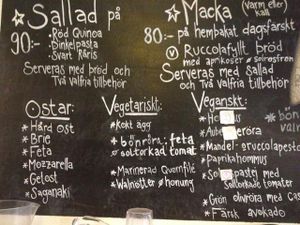 Sallad på
90:-
Röd Quinoa
Dinkelpasta
Svart Råris
Serveras med bröd och
Två valfria tillbehör
Macka
Varm eller
kall
80:- på hembakat dagsfärskt
V Ruccolafyllt bröd
med aprikoser & solrosfrön
Serveras med Sallad
och Två valfria tillbehör
Ostar:
* Hård ost
* Brie
* Feta
* Mozzarella
* Getost
* Saganaki
Vegetariskt:
* Kokt ägg
* bönröra: feta
& soltorkad tomat
* Marinerad Quornfilé
* Walnötter & honung
Veganskt:
* Mandel-
* Paprikahommus
pastej med
Soltorkade tomater
* Grön olivröra med
* Färsk avokado